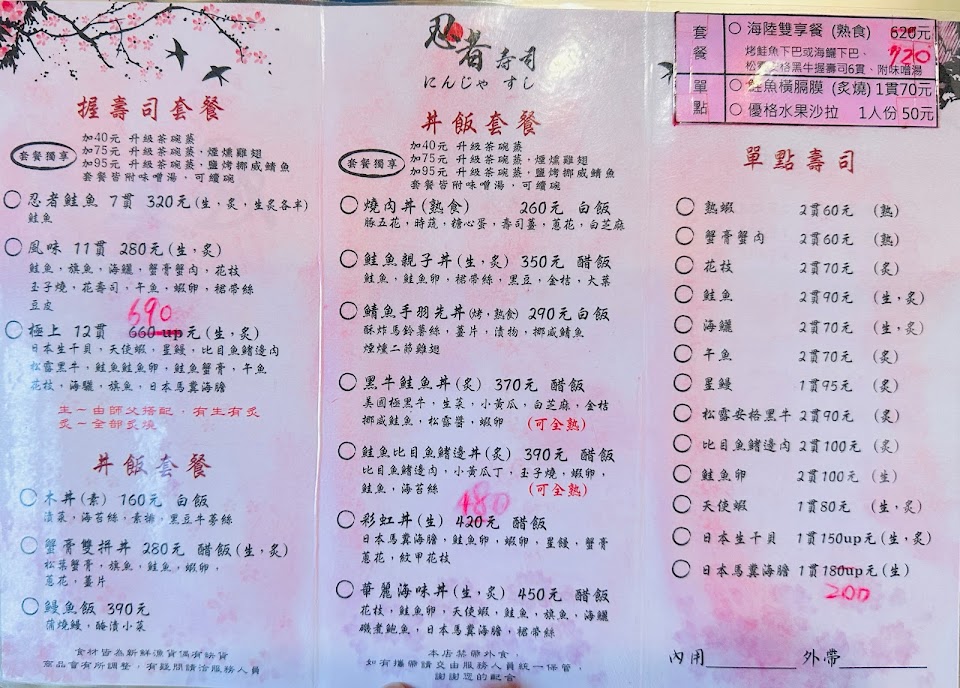 忍者壽司
にんじゃ すし
握壽司套餐
套餐獨享
加40元 升級茶碗蒸
加75元 升級茶碗蒸，煙燻雞翅
加95元 升級茶碗蒸，鹽烤挪威鯖魚
套餐皆附味噌湯，可續碗
忍者鮭魚 7貫 320元(生，炙，生炙各半)
鮭魚
風味 11貫 280元(生，炙)
鮭魚，旗魚，海鱺，蟹膏蟹肉，花枝
玉子燒，花壽司，午魚，蝦卵，裙帶絲
豆皮
690
極上 12貫 660 up元(生，炙)
日本生干貝，天使蝦，星鰻，比目魚鰭邊肉
松露黑牛，鮭魚鮭魚卵，鮭魚蟹膏，午魚
花枝，海鱺，旗魚，日本馬糞海膽
生－由師父搭配，有生有炙
炙－全部炙燒
丼飯套餐
木丼(素) 160元 白飯
漬菜，海苔絲，素排，黑豆牛蒡絲
蟹膏雙拼丼 280元 醋飯(生，炙)
松葉蟹膏，旗魚，鮭魚，蝦卵，
蔥花，薑片
鰻魚飯 390元
蒲燒鰻，醃漬小菜
食材皆為新鮮漁貨偶有缺貨
商品會有所調整，有疑問請洽服務人員
丼飯套餐
套餐獨享
加40元 升級茶碗蒸
加75元 升級茶碗蒸，煙燻雞翅
加95元 升級茶碗蒸，鹽烤挪威鯖魚
套餐皆附味噌湯，可續碗
燒肉丼(熟食) 260元 白飯
豚五花，時蔬，糖心蛋，壽司薑，蔥花，白芝麻
鮭魚親子丼(生，炙) 350元 醋飯
鮭魚，鮭魚卵，裙帶絲，黑豆，金桔，大葉
鯖魚手羽先丼(烤，熟食) 290元 白飯
酥炸馬鈴薯絲，薑片，漬物，挪威鯖魚
煙燻二節雞翅
黑牛鮭魚丼(炙) 370元 醋飯
美國極黑牛，生菜，小黃瓜，白芝麻，金桔
挪威鮭魚，松露醬，蝦卵 (可全熟)
鮭魚比目魚鰭邊丼(炙) 390元 醋飯
比目魚鰭邊肉，小黃瓜丁，玉子燒，蝦卵，
鮭魚，海苔絲 (可全熟)
480
彩虹丼(生) 420元 醋飯
日本馬糞海膽，鮭魚卵，蝦卵，星鰻，蟹膏
蔥花，紋甲花枝
華麗海味丼(生，炙) 450元 醋飯
花枝，鮭魚卵，天使蝦，鮭魚，旗魚，海鱺
磯煮鮑魚，日本馬糞海膽，裙帶絲
本店禁帶外食，
如有攜帶請交由服務人員統一保管，
謝謝您的配合
套餐
海陸雙享餐 (熟食) 620元
720
烤鮭魚下巴或海鱺下巴、
松露安格黑牛握壽司6貫、附味噌湯
單點
鮭魚橫膈膜 (炙燒) 1貫70元
優格水果沙拉 1人份 50元
單點壽司
熟蝦 2貫60元 (熟)
蟹膏蟹肉 2貫60元 (熟)
花枝 2貫70元 (炙)
鮭魚 2貫90元 (生，炙)
海鱺 2貫70元 (生，炙)
午魚 2貫70元 (炙)
星鰻 1貫95元 (炙)
松露安格黑牛 2貫90元 (炙)
比目魚鰭邊肉 2貫100元 (炙)
鮭魚卵 2貫100元 (生)
天使蝦 1貫80元 (生，炙)
日本生干貝 1貫150up元(生，炙)
日本馬糞海膽 1貫180up元(生)
200
內用 外帶